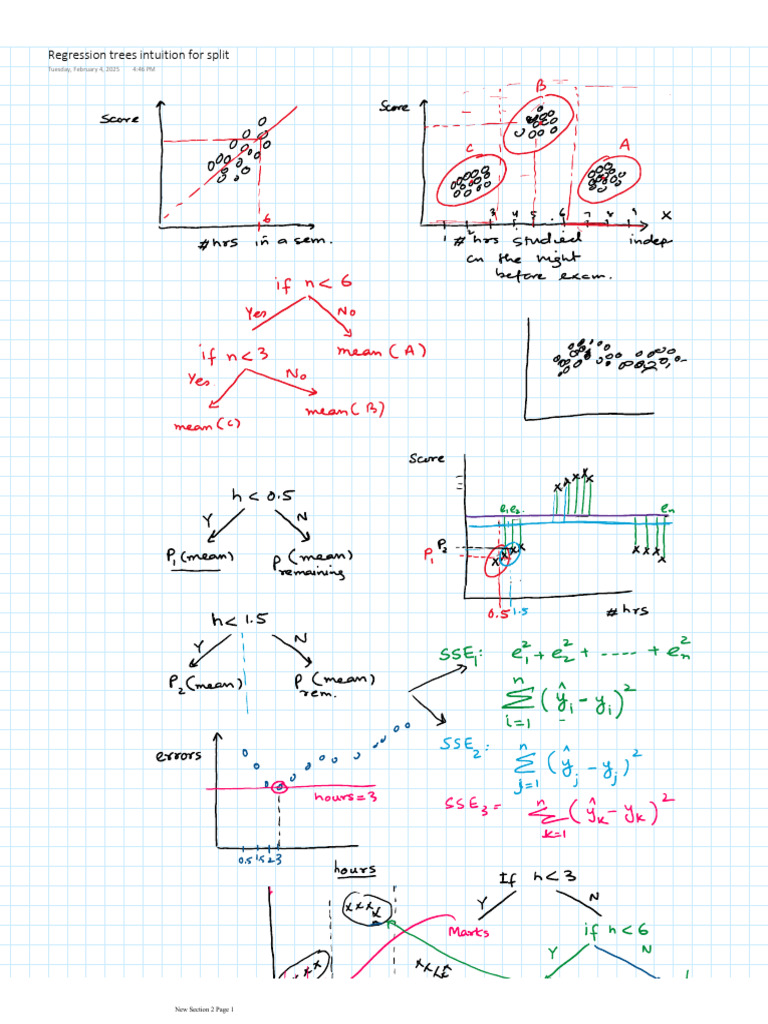 Regression trees intuition for split
Tuesday, February 4, 2025 4:46 PM
Score
6
#hrs in a sem.
Score
B
C
A
1 2 3 4 5 6 7 8 9 X
# hrs studied indep
on the night
before exam.
if n < 6
Yes No
mean (A)
if n < 3
Yes No
mean (C)
mean (B)
Score
e1 e2 en
P2
P1
0.5 1.5 # hrs
h < 0.5
Y N
P1 (mean) P (mean)
remaining
h < 1.5
Y N
P2 (mean) P (mean)
rem.
SSE1: e1² + e2² + ..... + en²
n
Σ (ŷi - yi)²
i=1
SSE2: n
Σ (ŷj - yj)²
j=1
SSE3 = n
Σ (ŷk - yk)²
k=1
errors
hours = 3
0.5 1.5 2 3
hours
If h < 3
Y N
Marks
if h < 6
Y N
New Section 2 Page 1